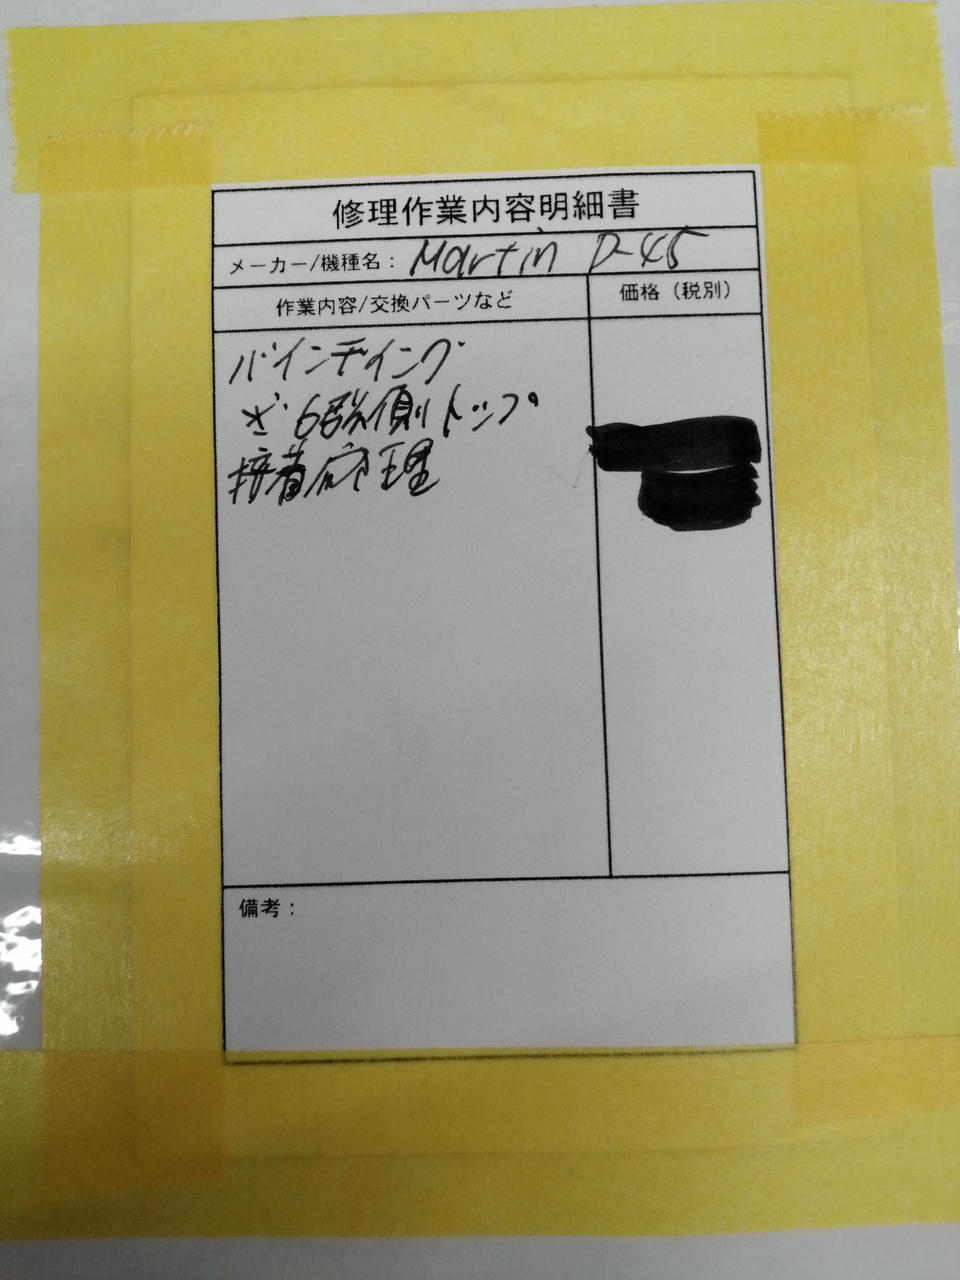 修理作業内容明細書
メーカー/機種名： Martin D-45
作業内容/交換パーツなど
価格（税別）
バインディング
6弦側トップ
接着修理
備考：